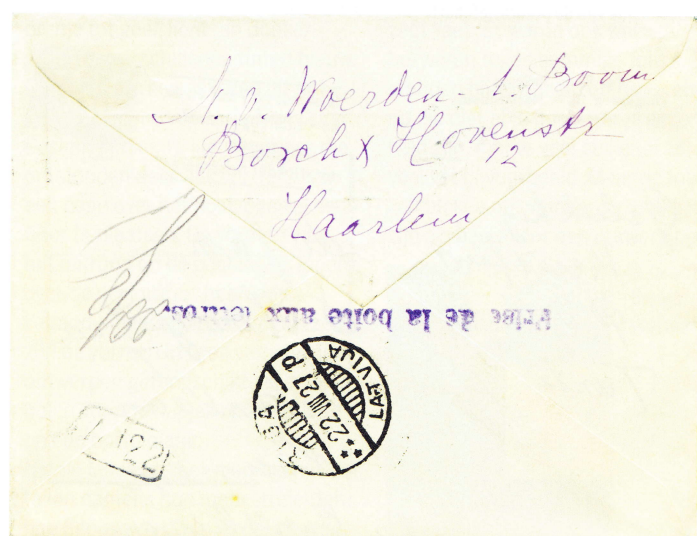 v. Woerden - t. Boom
Borsch x Hovenstr
12
Haarlem
Prise de la boîte aux lettres.
RIGA
LATVIJA
22 VIII 27 P